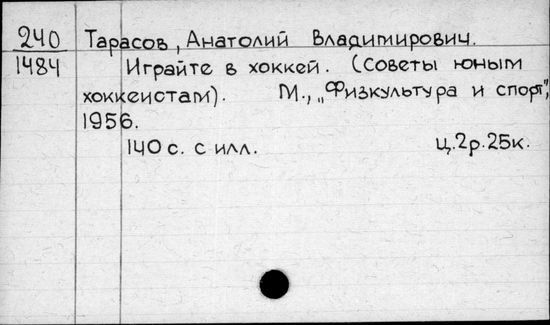 240 Тарасов, Анатолий Владимирович.
1484 Играйте в хоккей. (Советы юным
хоккеистам). М., „Физкультура и спорт",
1956.
140 с. с илл. Ц.2р.25к.